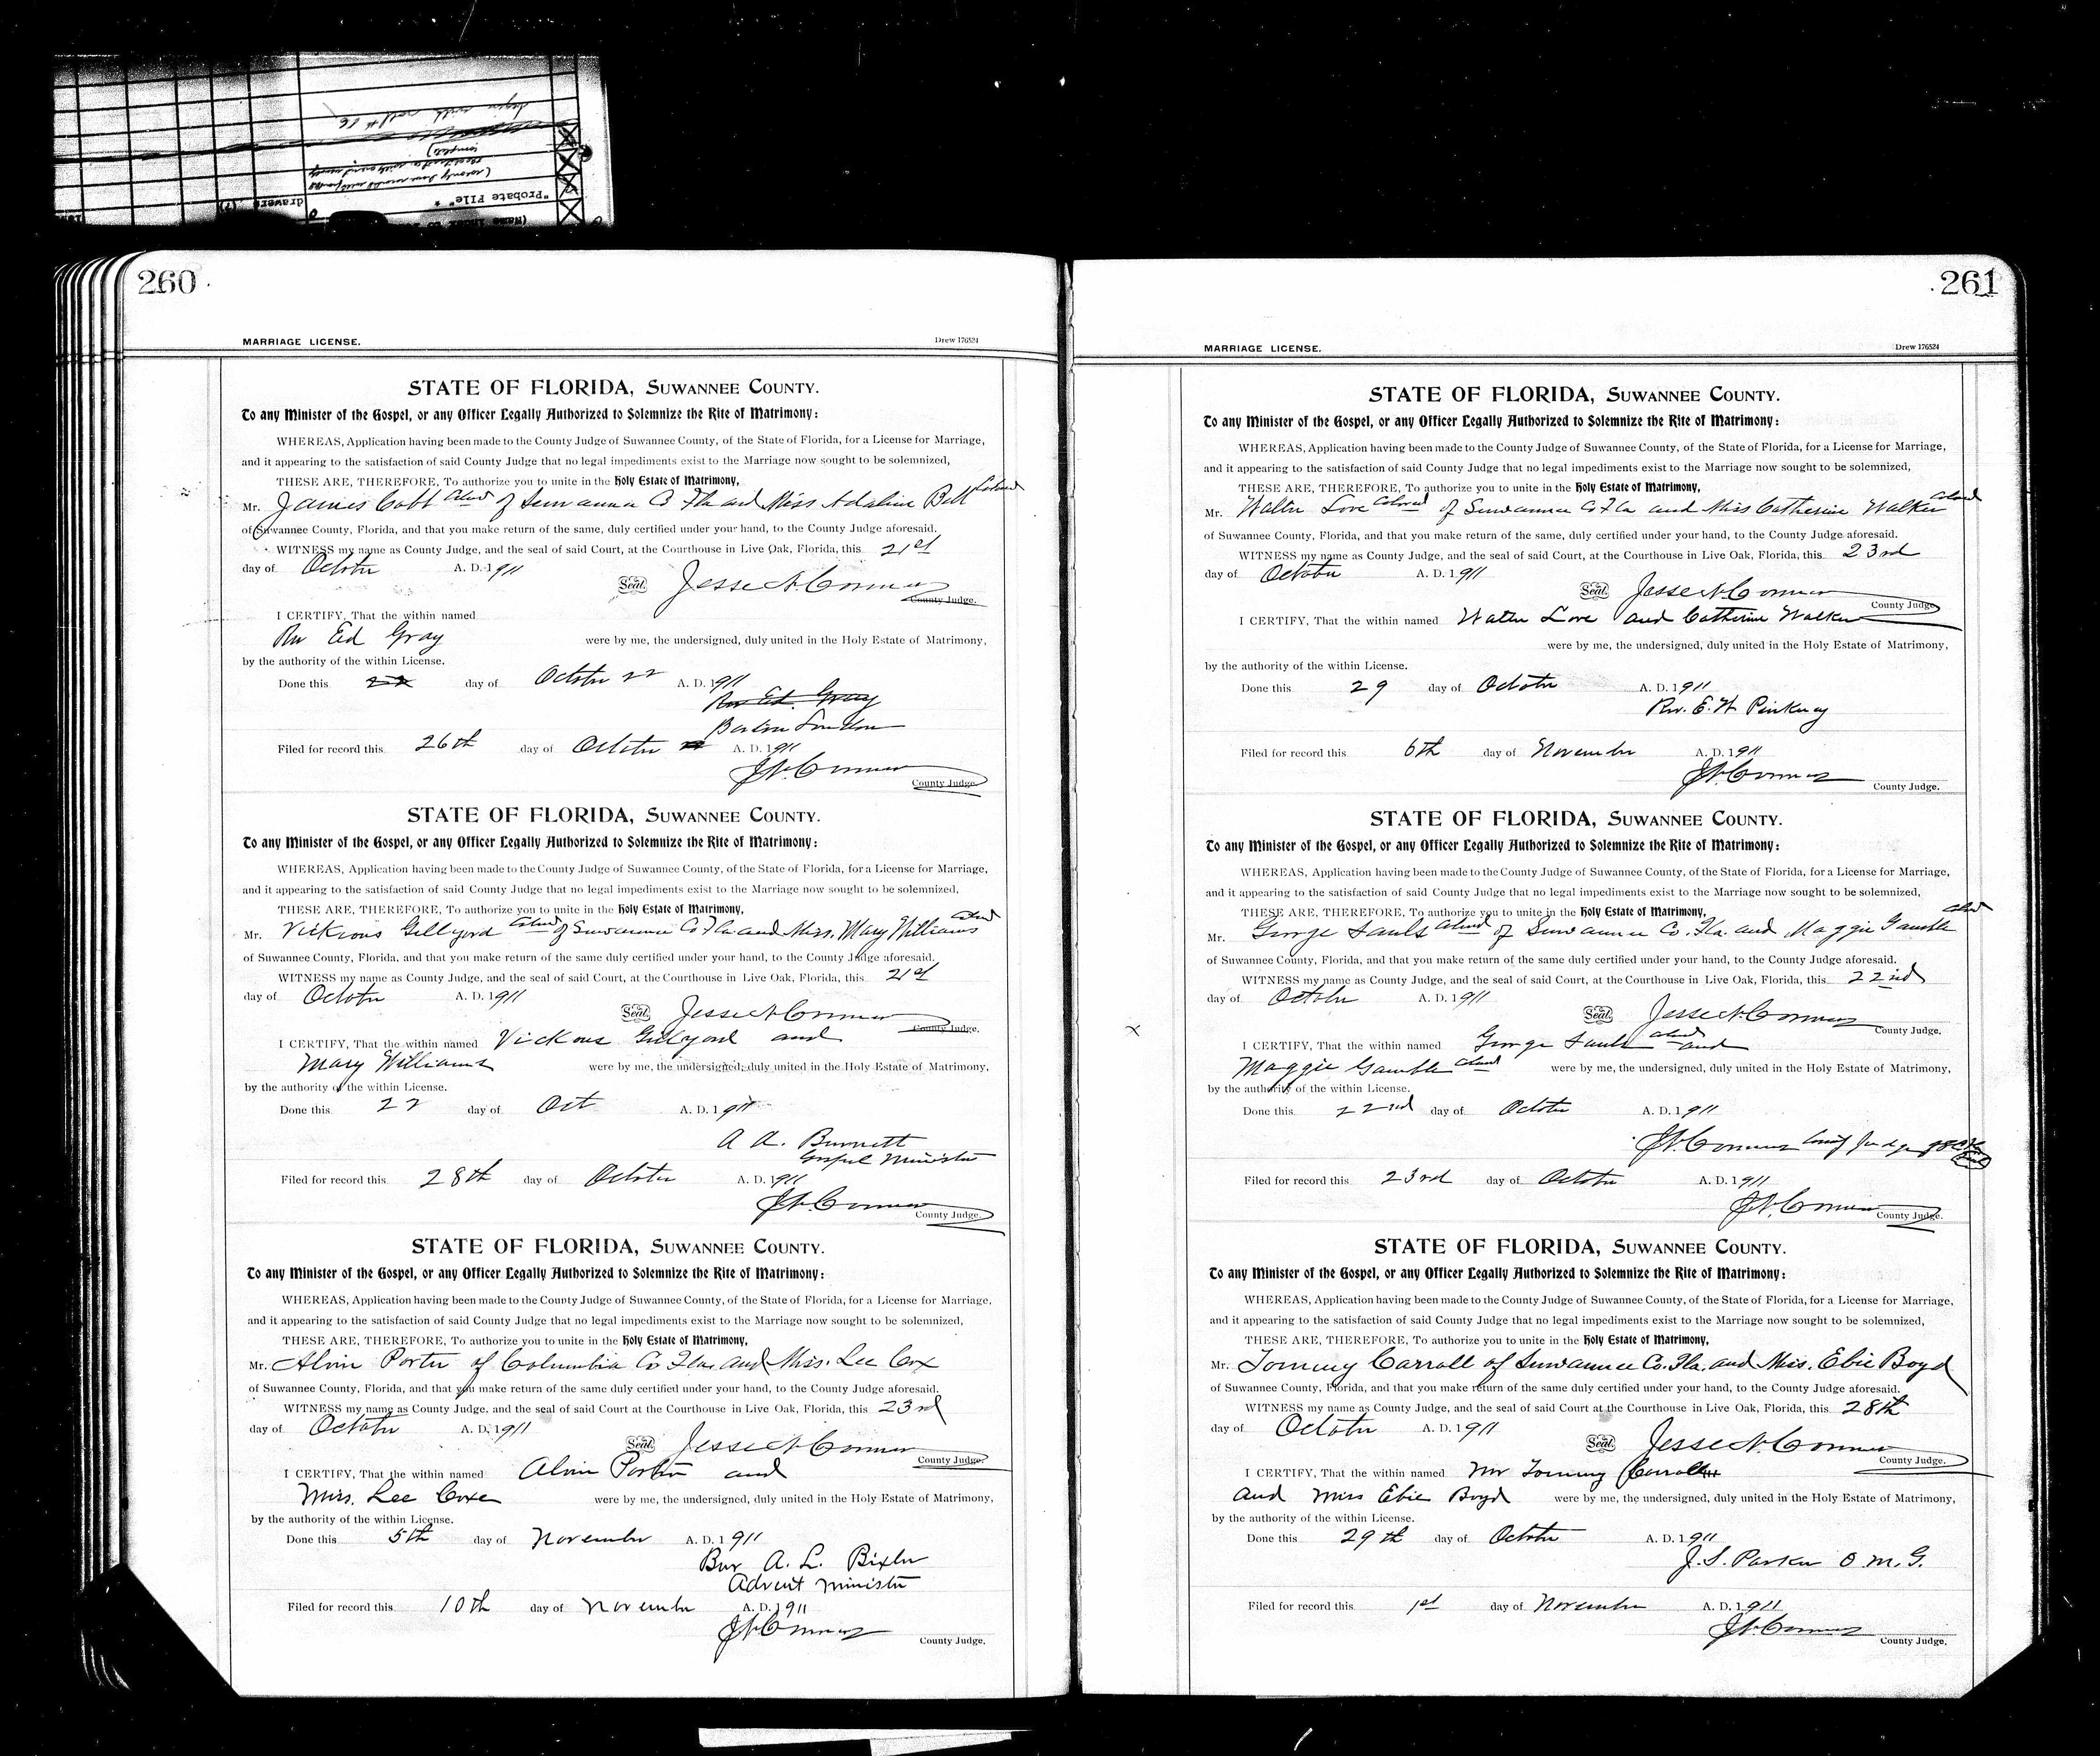 "Probate File" *
drawers
(?)
260
MARRIAGE LICENSE.
Drew 176524
STATE OF FLORIDA, SUWANNEE COUNTY.
To any Minister of the Gospel, or any Officer Legally Authorized to Solemnize the Rite of Matrimony:
WHEREAS, Application having been made to the County Judge of Suwannee County, of the State of Florida, for a License for Marriage,
and it appearing to the satisfaction of said County Judge that no legal impediments exist to the Marriage now sought to be solemnized,
THESE ARE, THEREFORE, To authorize you to unite in the Holy Estate of Matrimony,
Mr. James Cobb Colored of Suwannee Co Fla and Miss Adaline Bell Colored
of Suwannee County, Florida, and that you make return of the same, duly certified under your hand, to the County Judge aforesaid.
WITNESS my name as County Judge, and the seal of said Court, at the Courthouse in Live Oak, Florida, this 21st
day of October A. D. 1911
Seal. Jesse N. Conner
County Judge.
I CERTIFY, That the within named
Rev Ed Gray were by me, the undersigned, duly united in the Holy Estate of Matrimony,
by the authority of the within License.
Done this 22 day of October 22 A. D. 1911
Rev Ed. Gray
Filed for record this 26th day of October A. D. 1911
J.N. Conner
County Judge.
STATE OF FLORIDA, SUWANNEE COUNTY.
To any Minister of the Gospel, or any Officer Legally Authorized to Solemnize the Rite of Matrimony:
WHEREAS, Application having been made to the County Judge of Suwannee County, of the State of Florida, for a License for Marriage,
and it appearing to the satisfaction of said County Judge that no legal impediments exist to the Marriage now sought to be solemnized,
THESE ARE, THEREFORE, To authorize you to unite in the Holy Estate of Matrimony,
Mr. Vickious Gillyord Colored of Suwannee Co Fla and Miss. Mary Williams Colored
of Suwannee County, Florida, and that you make return of the same duly certified under your hand, to the County Judge aforesaid.
WITNESS my name as County Judge, and the seal of said Court, at the Courthouse in Live Oak, Florida, this 21st
day of October A. D. 1911
Seal. Jesse N. Conner
County Judge.
I CERTIFY, That the within named Vickous Gillyord and
Mary Williams were by me, the undersigned, duly united in the Holy Estate of Matrimony,
by the authority of the within License.
Done this 22 day of Oct A. D. 1911
A. A. Burnett
Gospel Minister
Filed for record this 28th day of October A. D. 1911
J.N. Conner
County Judge.
STATE OF FLORIDA, SUWANNEE COUNTY.
To any Minister of the Gospel, or any Officer Legally Authorized to Solemnize the Rite of Matrimony:
WHEREAS, Application having been made to the County Judge of Suwannee County, of the State of Florida, for a License for Marriage,
and it appearing to the satisfaction of said County Judge that no legal impediments exist to the Marriage now sought to be solemnized,
THESE ARE, THEREFORE, To authorize you to unite in the Holy Estate of Matrimony,
Mr. Alvin Porter of Columbia Co Fla. and Miss. Lee Cox
of Suwannee County, Florida, and that you make return of the same duly certified under your hand, to the County Judge aforesaid.
WITNESS my name as County Judge, and the seal of said Court at the Courthouse in Live Oak, Florida, this 23rd
day of October A. D. 1911
Seal. Jesse N. Conner
County Judge.
I CERTIFY, That the within named Alvin Porter and
Miss. Lee Coxe were by me, the undersigned, duly united in the Holy Estate of Matrimony,
by the authority of the within License.
Done this 5th day of November A. D. 1911
A. L. Bixler
Advent Minister
Filed for record this 10th day of November A. D. 1911
J.N. Conner
County Judge.
261
MARRIAGE LICENSE.
Drew 176524
STATE OF FLORIDA, SUWANNEE COUNTY.
To any Minister of the Gospel, or any Officer Legally Authorized to Solemnize the Rite of Matrimony:
WHEREAS, Application having been made to the County Judge of Suwannee County, of the State of Florida, for a License for Marriage,
and it appearing to the satisfaction of said County Judge that no legal impediments exist to the Marriage now sought to be solemnized,
THESE ARE, THEREFORE, To authorize you to unite in the Holy Estate of Matrimony,
Mr. Walter Love Colored of Suwannee Co Fla and Miss Catherine Walker Colored
of Suwannee County, Florida, and that you make return of the same, duly certified under your hand, to the County Judge aforesaid.
WITNESS my name as County Judge, and the seal of said Court, at the Courthouse in Live Oak, Florida, this 23rd
day of October A. D. 1911
Seal. Jesse N. Conner
County Judge.
I CERTIFY, That the within named Walter Love and Catherine Walker
were by me, the undersigned, duly united in the Holy Estate of Matrimony,
by the authority of the within License.
Done this 29 day of October A. D. 1911
Rev. E. W. Pinkney
Filed for record this 6th day of November A. D. 1911
J.N. Conner
County Judge.
STATE OF FLORIDA, SUWANNEE COUNTY.
To any Minister of the Gospel, or any Officer Legally Authorized to Solemnize the Rite of Matrimony:
WHEREAS, Application having been made to the County Judge of Suwannee County, of the State of Florida, for a License for Marriage,
and it appearing to the satisfaction of said County Judge that no legal impediments exist to the Marriage now sought to be solemnized,
THESE ARE, THEREFORE, To authorize you to unite in the Holy Estate of Matrimony,
Mr. George Sauls Colored of Suwannee Co. Fla. and Maggie Gamble Colored
of Suwannee County, Florida, and that you make return of the same, duly certified under your hand, to the County Judge aforesaid.
WITNESS my name as County Judge, and the seal of said Court, at the Courthouse in Live Oak, Florida, this 22nd
day of October A. D. 1911
Seal. Jesse N. Conner
County Judge.
I CERTIFY, That the within named George Sauls Colored and
Maggie Gamble Colored were by me, the undersigned, duly united in the Holy Estate of Matrimony,
by the authority of the within License.
Done this 22nd day of October A. D. 1911
J.N. Conner County Judge
Filed for record this 23rd day of October A. D. 1911
J.N. Conner
County Judge.
STATE OF FLORIDA, SUWANNEE COUNTY.
To any Minister of the Gospel, or any Officer Legally Authorized to Solemnize the Rite of Matrimony:
WHEREAS, Application having been made to the County Judge of Suwannee County, of the State of Florida, for a License for Marriage,
and it appearing to the satisfaction of said County Judge that no legal impediments exist to the Marriage now sought to be solemnized,
THESE ARE, THEREFORE, To authorize you to unite in the Holy Estate of Matrimony,
Mr. Tommy Carroll of Suwannee Co. Fla. and Miss. Ebie Boyd
of Suwannee County, Florida, and that you make return of the same duly certified under your hand, to the County Judge aforesaid.
WITNESS my name as County Judge, and the seal of said Court at the Courthouse in Live Oak, Florida, this 28th
day of October A. D. 1911
Seal. Jesse N. Conner
County Judge.
I CERTIFY, That the within named Mr Tommy Carroll
and Miss Ebie Boyd were by me, the undersigned, duly united in the Holy Estate of Matrimony,
by the authority of the within License.
Done this 29th day of October A. D. 1911
J. S. Parker O. M. G.
Filed for record this 1st day of November A. D. 1911
J.N. Conner
County Judge.